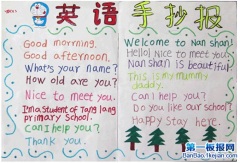 英语手抄报
Good morning.
Good afternoon.
What's your name?
How old are you?
Nice to meet you.
I'm a student of Tang lang
primary school.
Can I help you?
Thank you.
Welcome to Nan shan!
Hello! Nice to meet you.
Nan shan is beautiful.
This is my mummy
daddy.
Can I help you?
Do you like our school?
Happy Stay here.
第一板报网